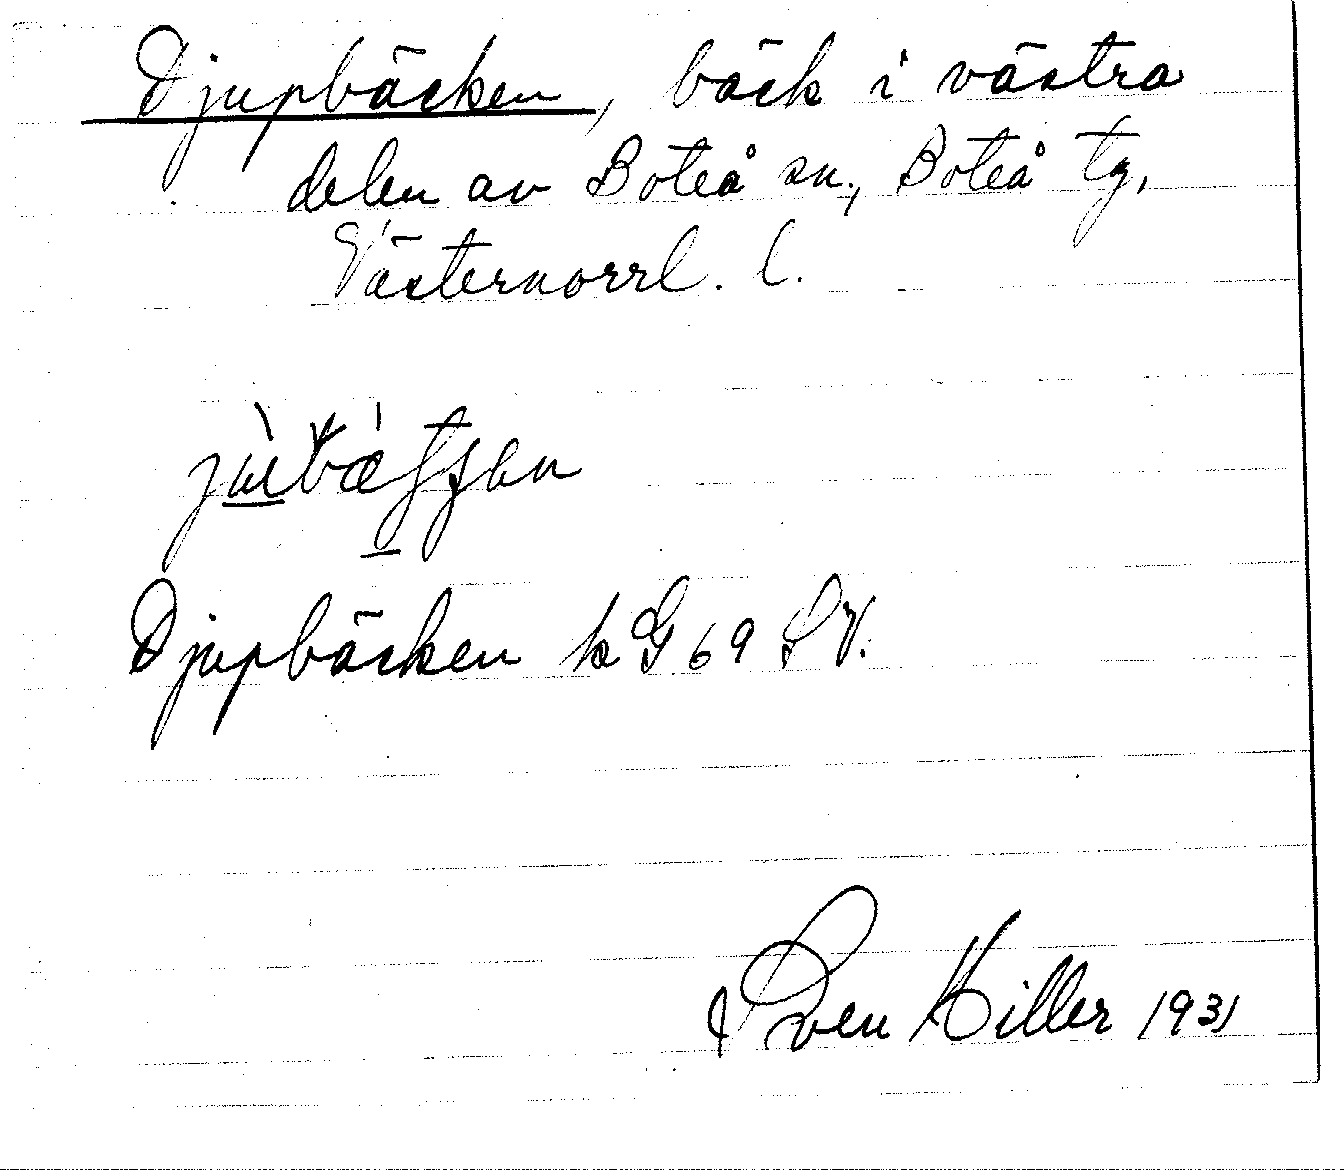 Djupbäcken, bäck i västra
delen av Boteå sn., Boteå tg,
Västernorrl. l.
Djupbäcken k G 69 SV.
Sven Hiller 1931